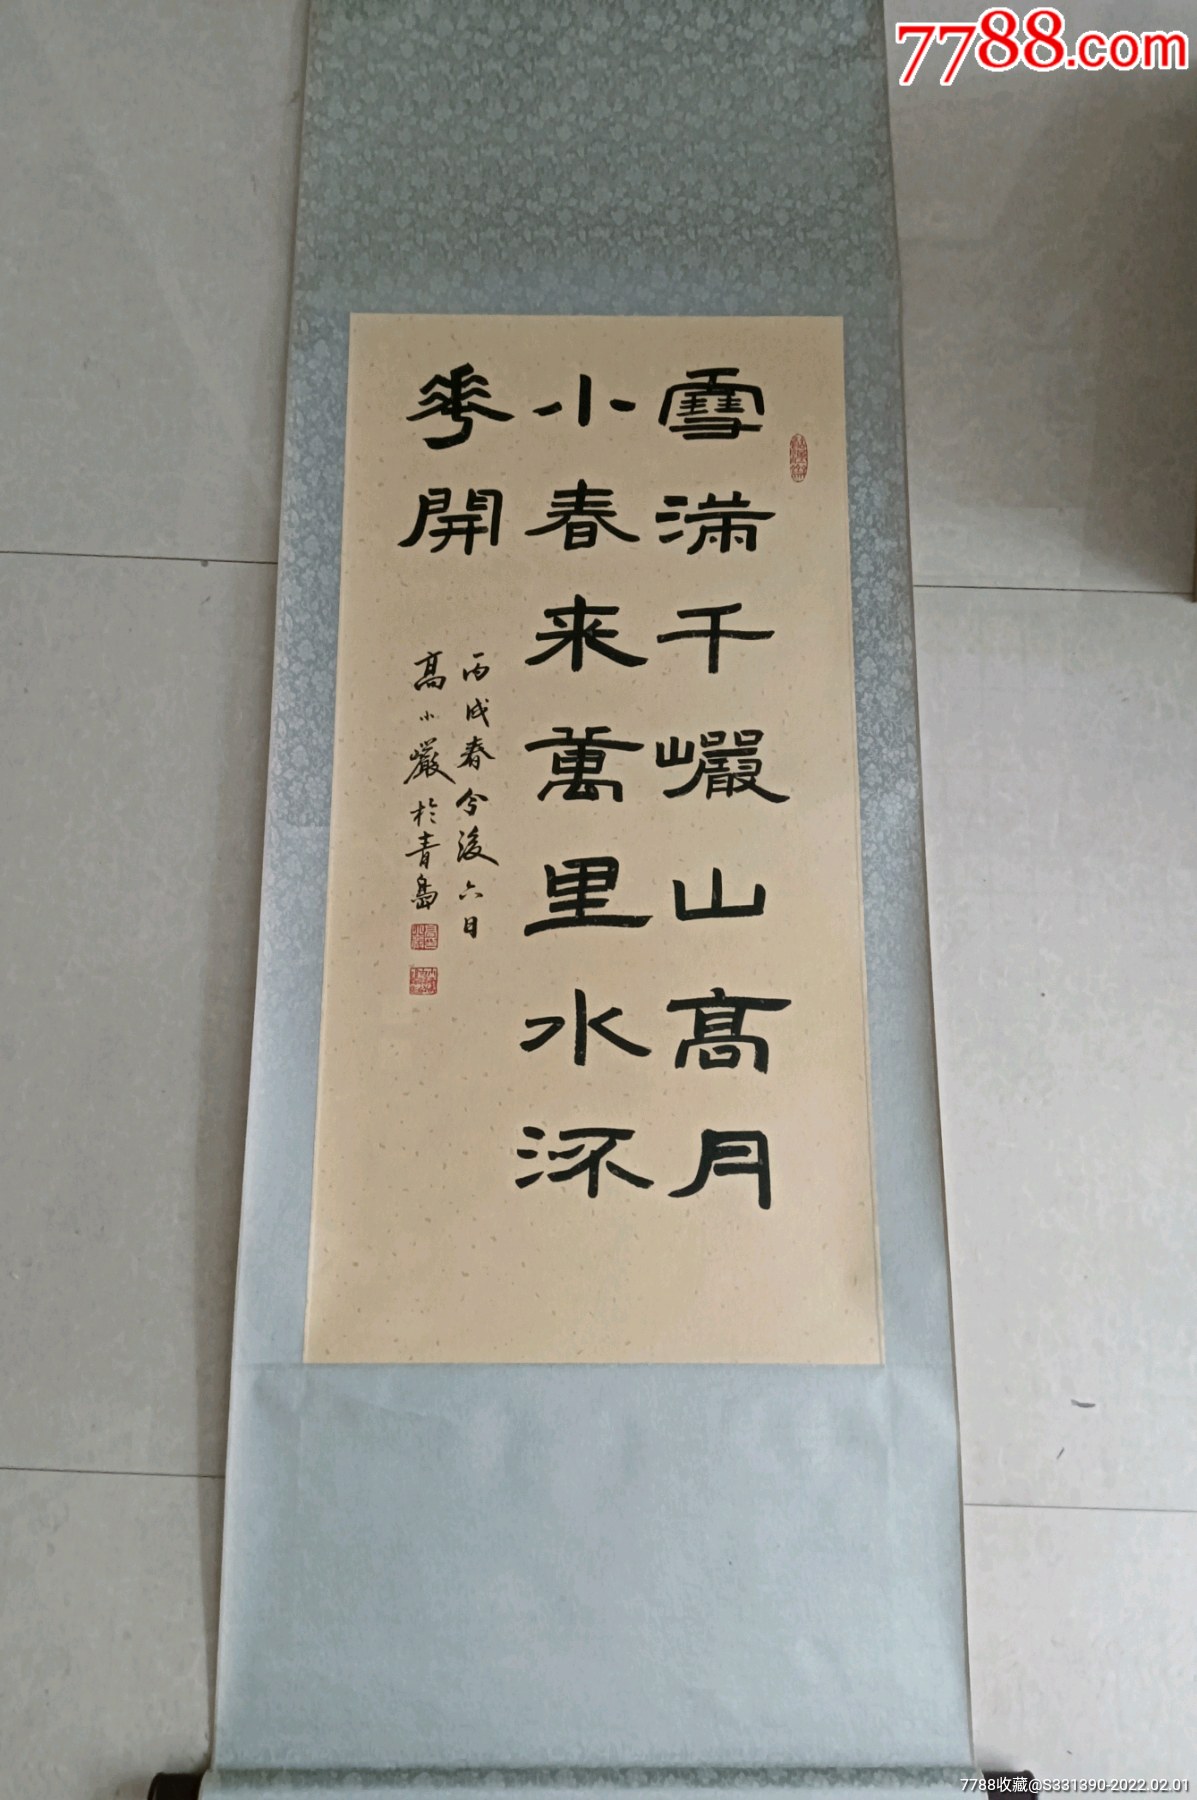 7788.com
雪滿千巗山高月
小春来萬里水环
華開
丙戌春分後六日
高小巖於青島
7788收藏@S331390-2022.02.01